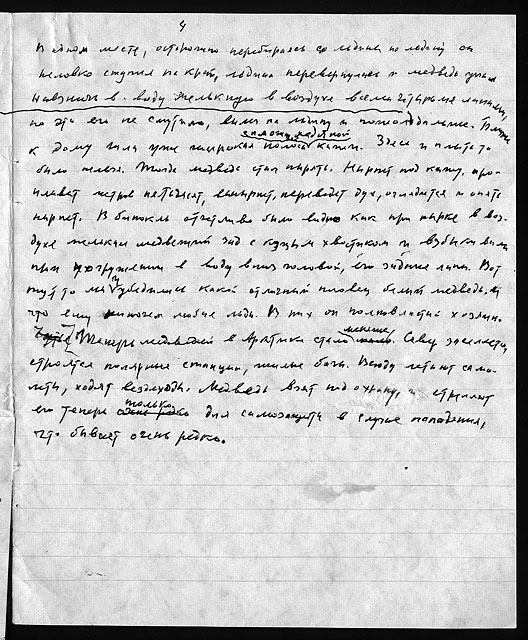 4
В одном месте, осторожно перебираясь со льдины на льдину он
неловко ступил на край, льдина перевернулась и медведь упал
навзничь в воду мелькнув в воздухе всеми четырьмя лапами,
но это его не смутило, вылез на льдину и пошел дальше. Ближе
сплошной ледяной
к дому шла уже широкая полоса каши. Здесь и плыть то
было нельзя. Тогда медведь стал нырять. Нырнет под кашу, про-
плывет метров пятьдесят, вынырнет, переведет дух, оглядится и опять
нырнет. В бинокль отчетливо было видно как при нырке в воз-
духе мелькал медвежий зад с куцым хвостиком и взбрыкивали
при погружении в воду вниз головой, его задние лапы. Вот
тут то мы и убедились какой отличный пловец белый медведь и
что ему нипочем любые льды. В них он полновластный хозяин.
меньше
Теперь медведей в Арктике стало. Север заселяется,
строятся полярные станции, жилые базы. Всюду летают само-
леты, ходят вездеходы. Медведь взят под охрану, и стреляют
только
его теперь очень редко для самозащиты в случае нападения,
что бывает очень редко.